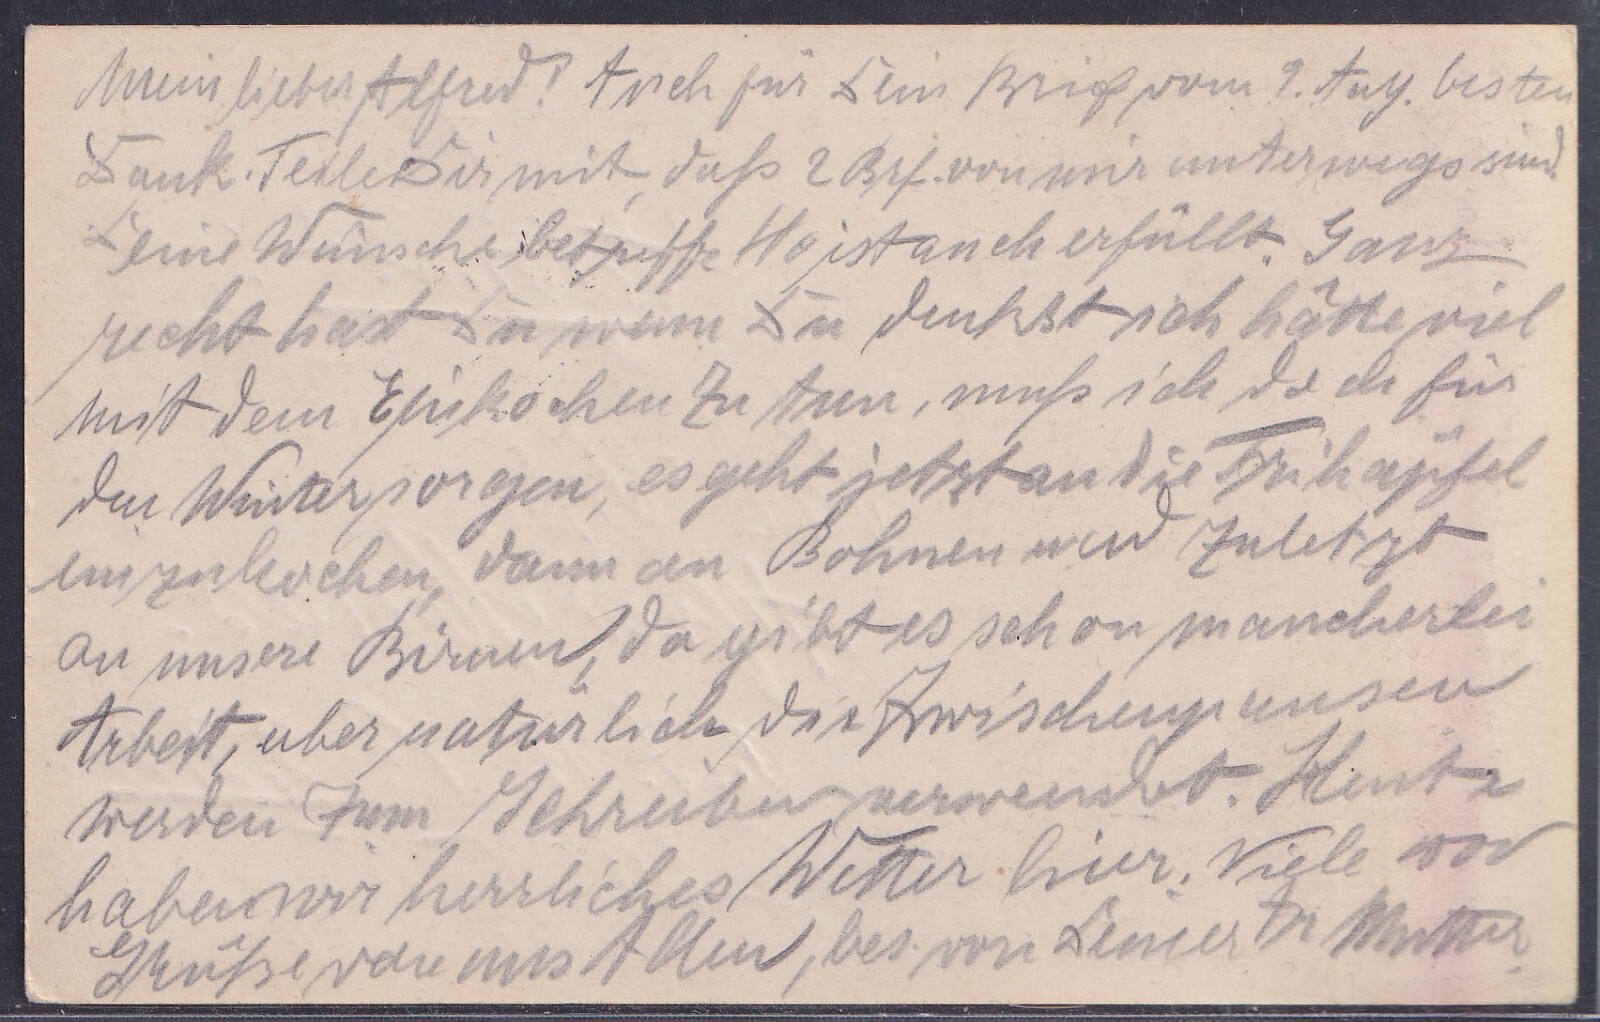 Mein lieber Alfred! Auch für Dein Brief vom 9. Aug. besten
Dank. Teile Dir mit, daß 2 Brf. von mir unterwegs sind.
Deine Wünsche betreffs ist auch erfüllt. Ganz
recht hast Du wenn Du denkst ich hätte viel
mit dem Einkochen zu tun, muß ich doch für
den Winter sorgen, es geht jetzt an die Frühäpfel
einzukochen, dann an Bohnen und zuletzt
an unsere Birnen, da gibt es schon mancherlei
Arbeit, aber natürlich die Zwischenpausen
werden zum Schreiben verwendet. Heute
haben wir herrliches Wetter hier. Viele
Grüße von uns Allen, bes. von Deiner Mutter.